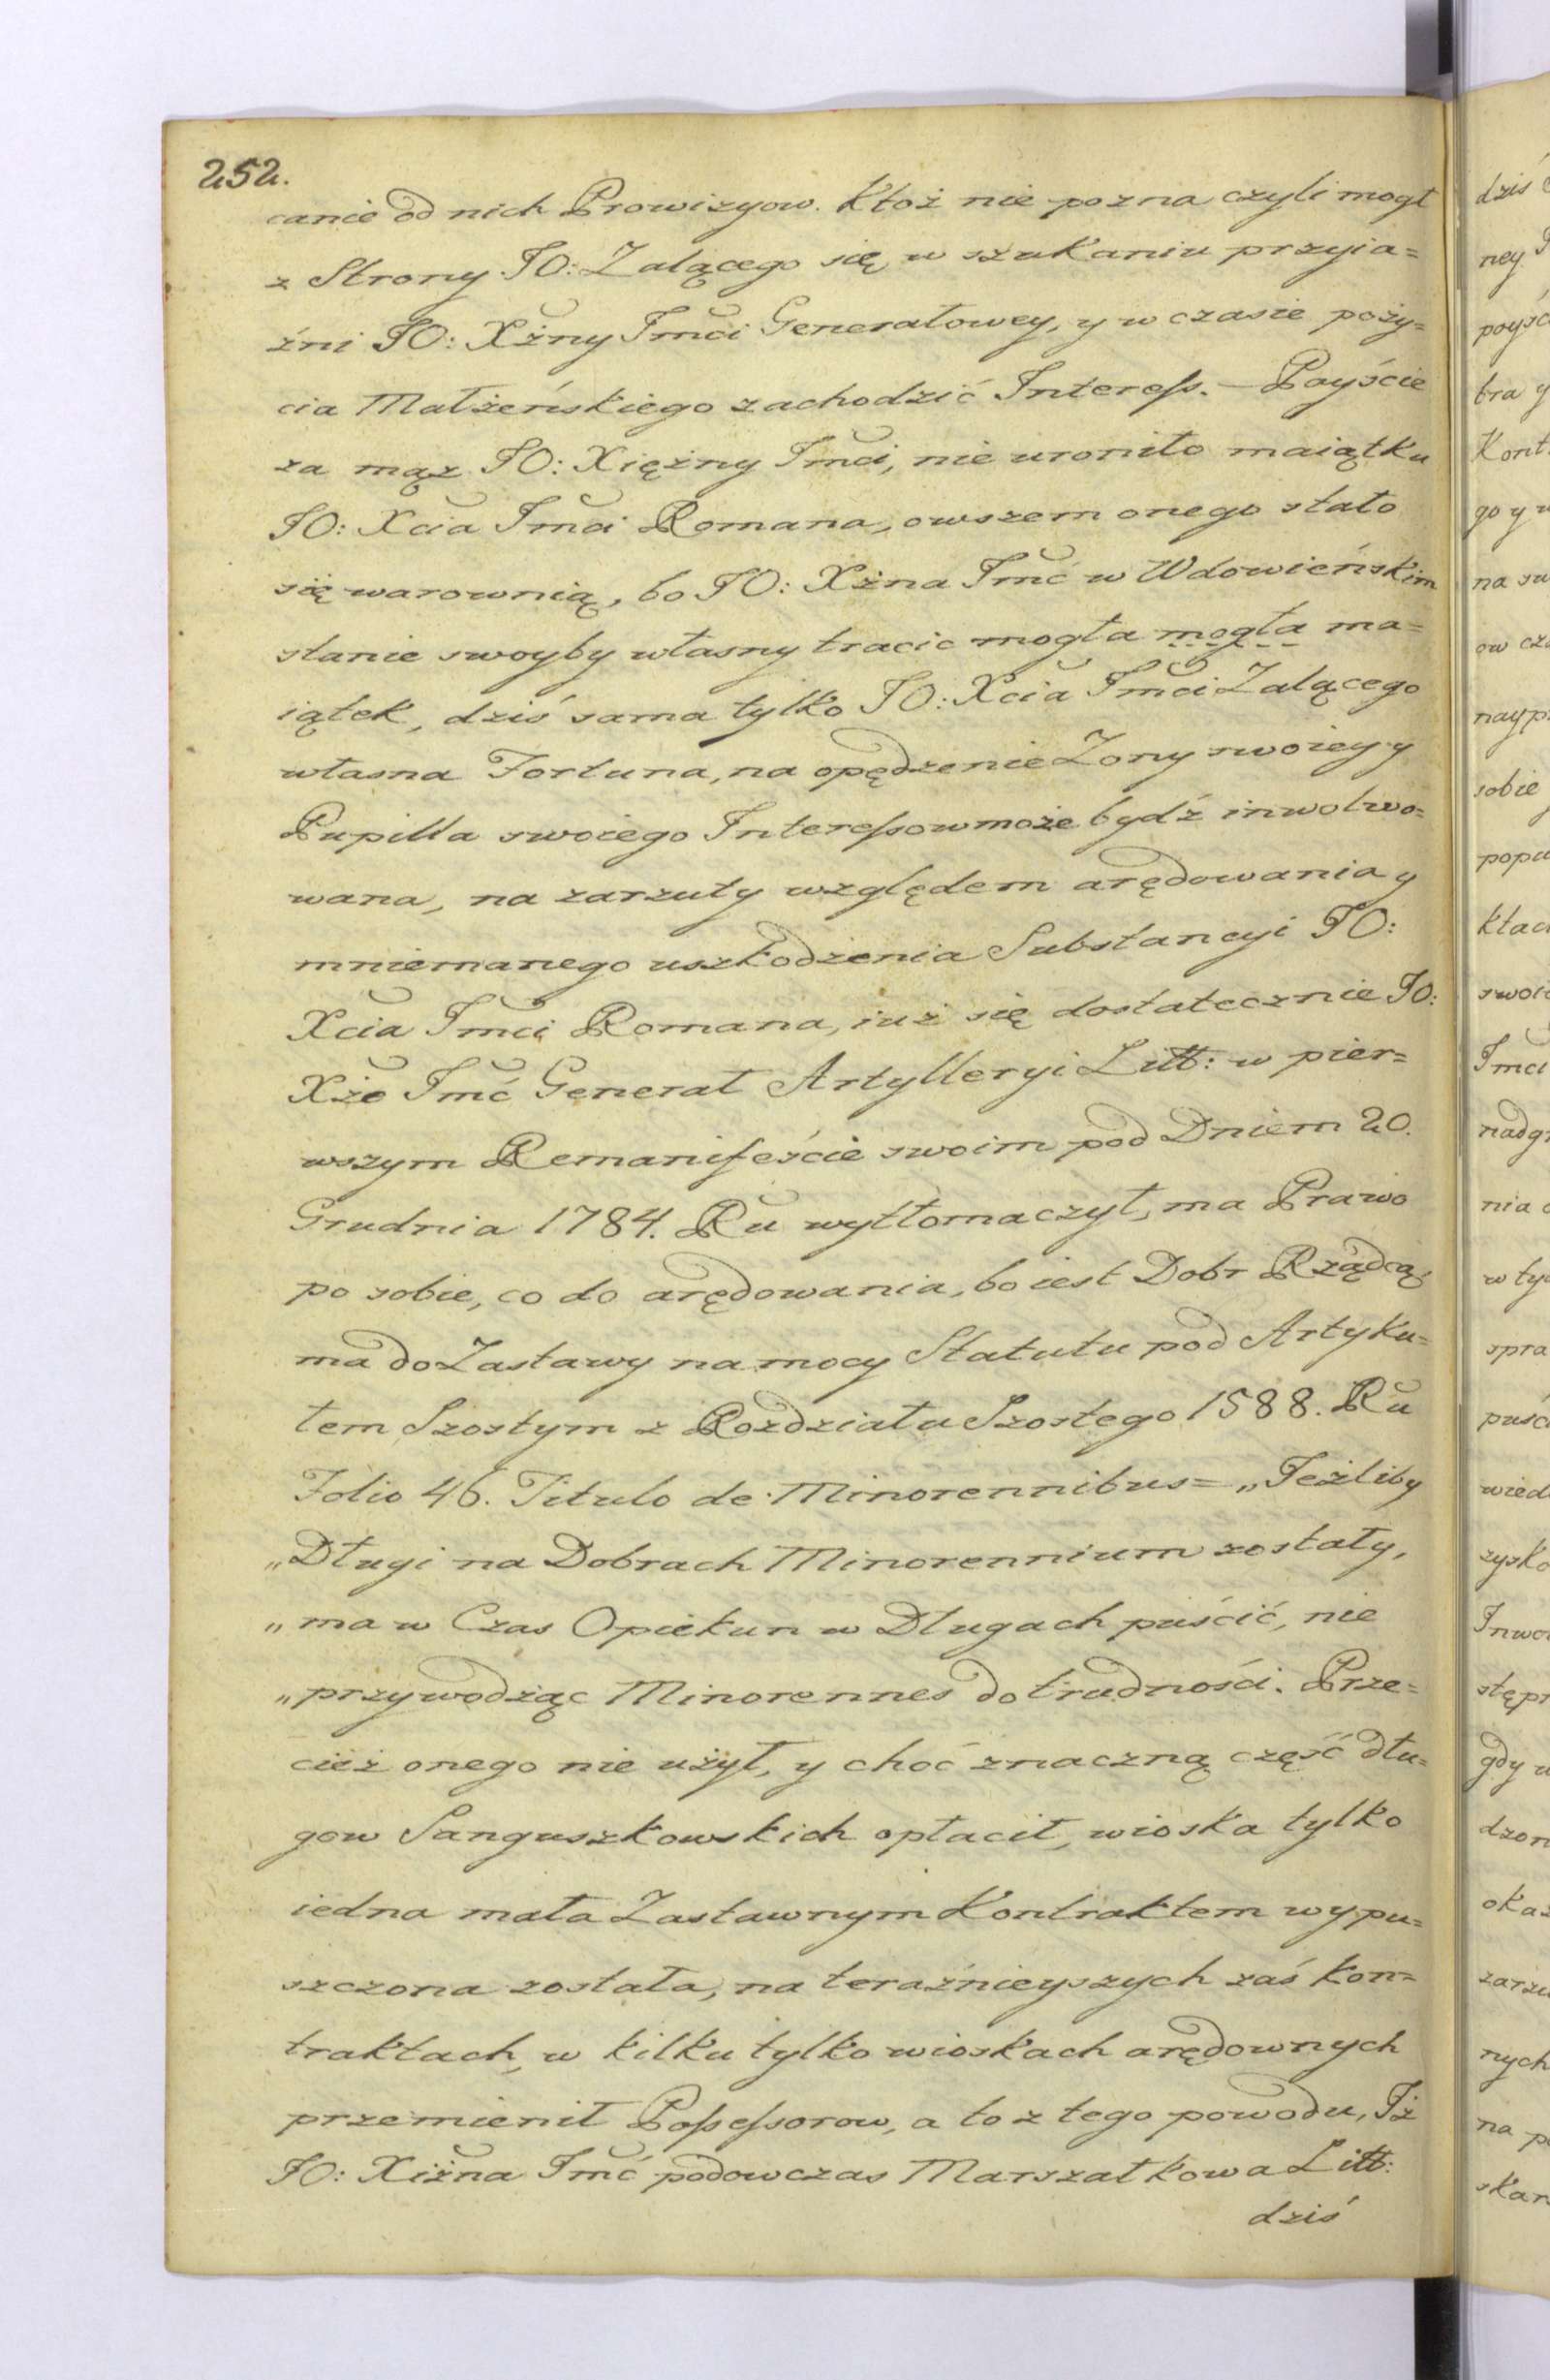 252.
canie od nich Prowizyow. Ktoż nie pozna czyli mogł
z Strony JO: Zalącego się w szukaniu przyia=
źni JO: Xżny Jmci Generałowey, y w czasie poży=
cia Małżeńskiego zachodzić Interess. — Poyście
za mąz JO: Xiężny Jmci, nie uroniło maiątku
JO: Xcia Jmci Romana, owszem onego stało
się warownią, bo JO: Xżna Jmć w Wdowieńskim
stanie swoyby własny tracic mogła mogła ma=
iątek, dziś sama tylko JO: Xcia Jmci Zalącego
własna Fortuna, na opędzenie Zony swoiey y
Pupilla swoiego Interessow może bydź inwolwo=
wana, na zarzuty względem arędowania y
mniemanego uszkodzenia Substancyi JO:
Xcia Jmci Romana, iuż się dostatecznie JO:
Xże Jmć Generał Artylleryi Litt: w pier=
wszym Remanifeście swoim pod Dniem 20.
Grudnia 1784. Ru wytłomaczył, ma Prawo
po sobie, co do arędowania, bo iest Dobr Rządcą,
ma do Zastawy na mocy Statutu pod Artyku=
łem Szostym z Rozdziału Szostego 1588. Ru
Folio 46. Titulo de Minorennibus = „Jeżliby
„Długi na Dobrach Minorennium zostały,
„ma w Czas Opiekun w Długach puścić, nie
„przywodząc Minorennes do trudności. Prze=
cież onego nie użył, y choć znaczną część dłu=
gow Sanguszkowskich opłacił, wioska tylko
iedna mała Zastawnym Kontraktem wypu=
szczona została, na teraźnieyszych zaś kon=
traktach, w kilku tylko wioskach arędownych
przemienił Possessorow, a to z tego powodu, Iż
JO: Xiżna Jmć podowczas Marszałkowa Litt:
dziś